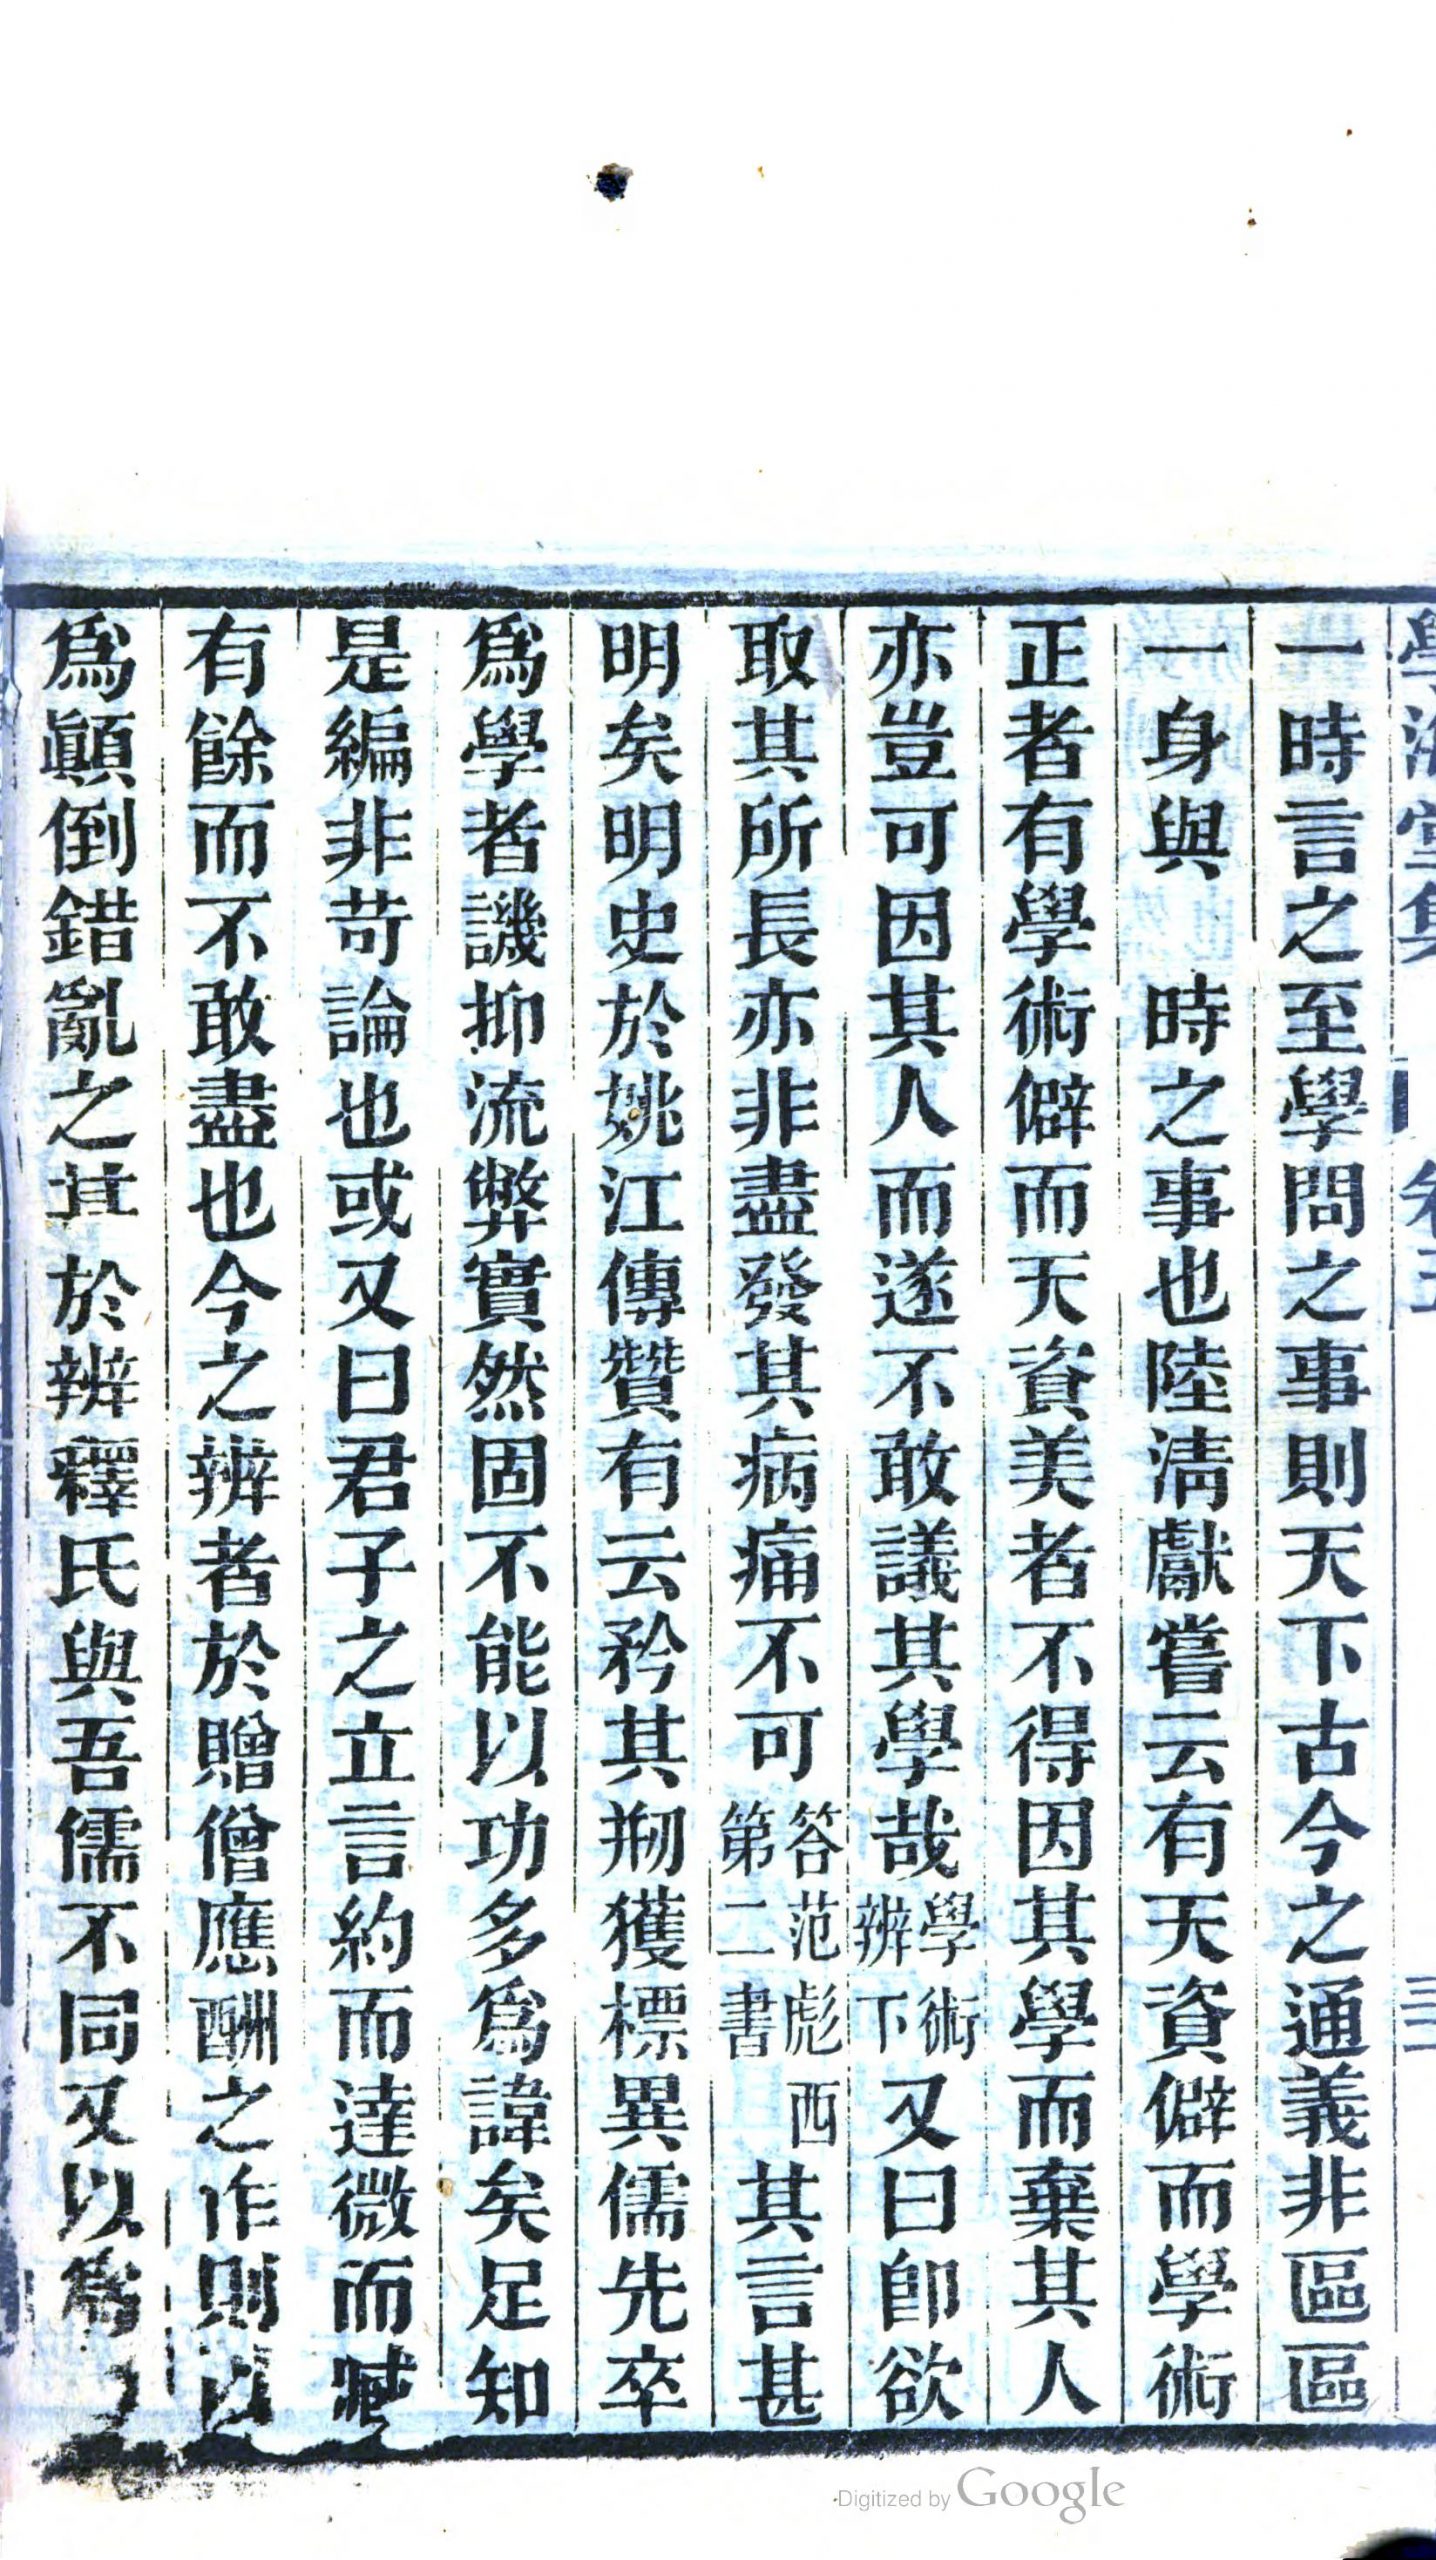 學海堂集 卷五 三二
一時言之至學問之事則天下古今之通義非區區
一身與 時之事也陸淸獻嘗云有天資僻而學術
正者有學術僻而天資美者不得因其學而棄其人
亦豈可因其人而遂不敢議其學哉學術辨下又曰卽欲
取其所長亦非盡發其病痛不可答范彪西第二書其言甚
明矣明史於姚江傳贊有云矜其剏獲標異儒先卒
爲學者譏抑流弊實然固不能以功多爲諱矣足知
是編非苛論也或又曰君子之立言約而達微而臧
有餘而不敢盡也今之辨者於贈僧應酬之作則
爲顚倒錯亂之其於辨釋氏與吾儒不同又以爲
Digitized by Google